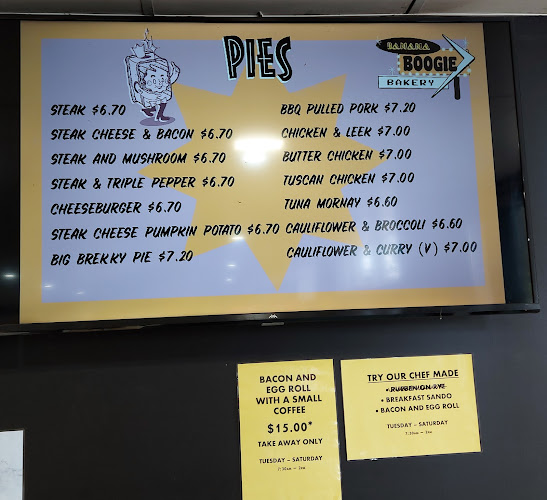 PIES
BANANA
BOOGIE
BAKERY
STEAK $6.70
STEAK CHEESE & BACON $6.70
STEAK AND MUSHROOM $6.70
STEAK & TRIPLE PEPPER $6.70
CHEESEBURGER $6.70
STEAK CHEESE PUMPKIN POTATO $6.70
BIG BREKKY PIE $7.20
BBQ PULLED PORK $7.20
CHICKEN & LEEK $7.00
BUTTER CHICKEN $7.00
TUSCAN CHICKEN $7.00
TUNA MORNAY $6.60
CAULIFLOWER & BROCCOLI $6.60
CAULIFLOWER & CURRY (V) $7.00
BACON AND
EGG ROLL
WITH A SMALL
COFFEE
$15.00*
TAKE AWAY ONLY
TUESDAY – SATURDAY
7:30am – 2pm
TRY OUR CHEF MADE
• RUEBEN ON RYE
• BREAKFAST SANDO
• BACON AND EGG ROLL
TUESDAY – SATURDAY
7:30am – 2pm